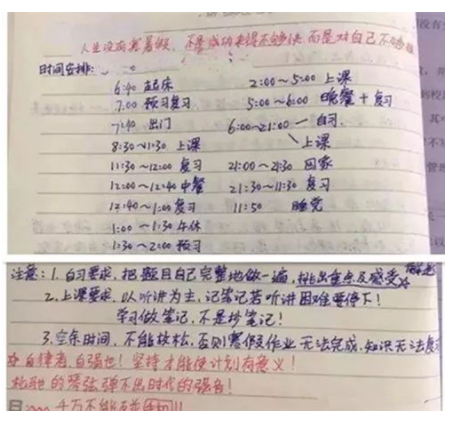 人生没有寒暑假，不是成功来得不够快，而是对自己不够
时间安排：
6:40 起床
7:00 预习复习
7:40 出门
8:30~11:30 上课
11:30~12:00 复习
12:00~12:40 中餐
12:40~1:00 复习
1:00~1:30 午休
1:30~2:00 预习
2:00~5:00 上课
5:00~6:00 晚餐+复习
6:00~21:00 自习
上课
21:00~21:30 回家
21:30~11:30 复习
11:50 睡觉
注意：1.自习要求，把题目自己完整地做一遍，挑出重点及感受
2.上课要求，以听讲为主，记笔记若听讲困难要停下！
学习做笔记，不是抄笔记！
3.空余时间，不能放松，否则寒假作业无法完成，知识无法复习
☆自律者，自强也！坚持才能使计划有意义！
松弛的琴弦弹不出时代的强音！
千万不能